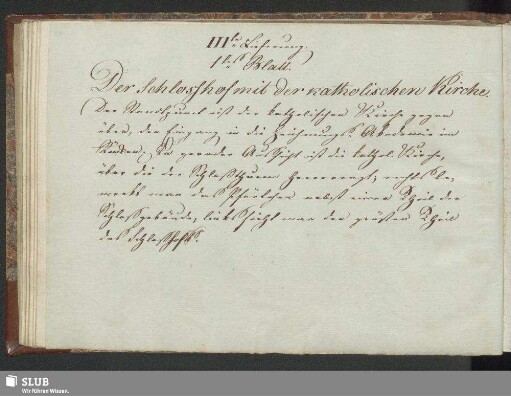 IIIte Lieferung.
1tes Blatt.
Der Schlosshof mit der katholischen Kirche.
Der Standpunct ist der kathol­ischen Kirche gegen
über, der Eingang in die Zeichnungs Akademie im
Rücken; In grader Aussicht ist die kathol. Kirche,
über die der Schlossthurm hervorragt; rechts be-
merkt man das Pförtchen nebst einem Theil der
Schlossgebäude, links sieht man den größten Theil
des Schlosshofs.
SLUB
Wir führen Wissen.